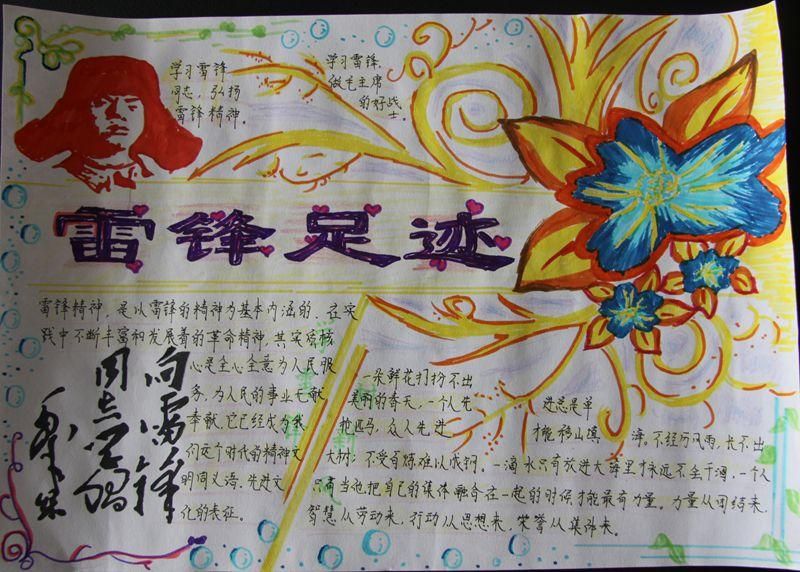 学习雷锋
同志，弘扬
雷锋精神。
学习雷锋，
做毛主席
的好战
士。
雷锋足迹
雷锋精神，是以雷锋的精神为基本内涵的，在实
践中不断丰富和发展着的革命精神，其实质核
心是全心全意为人民服
务，为人民的事业无私
奉献，它已经成为我
们这个时代的精神文
明同义语、先进文
化的表征。
向雷锋
同志学习
一朵鲜花打扮不出
美丽的春天，一个人先
进总是单
枪匹马，众人先进
才能移山填海。不经历风雨，长不出
大树，不受百炼难以成钢。一滴水只有放进大海里才永远不会干涸，一个人
只有当他把自己的集体融合在一起的时候才能最有力量。力量从团结来，
智慧从劳动来，行动从思想来，荣誉从集体来。